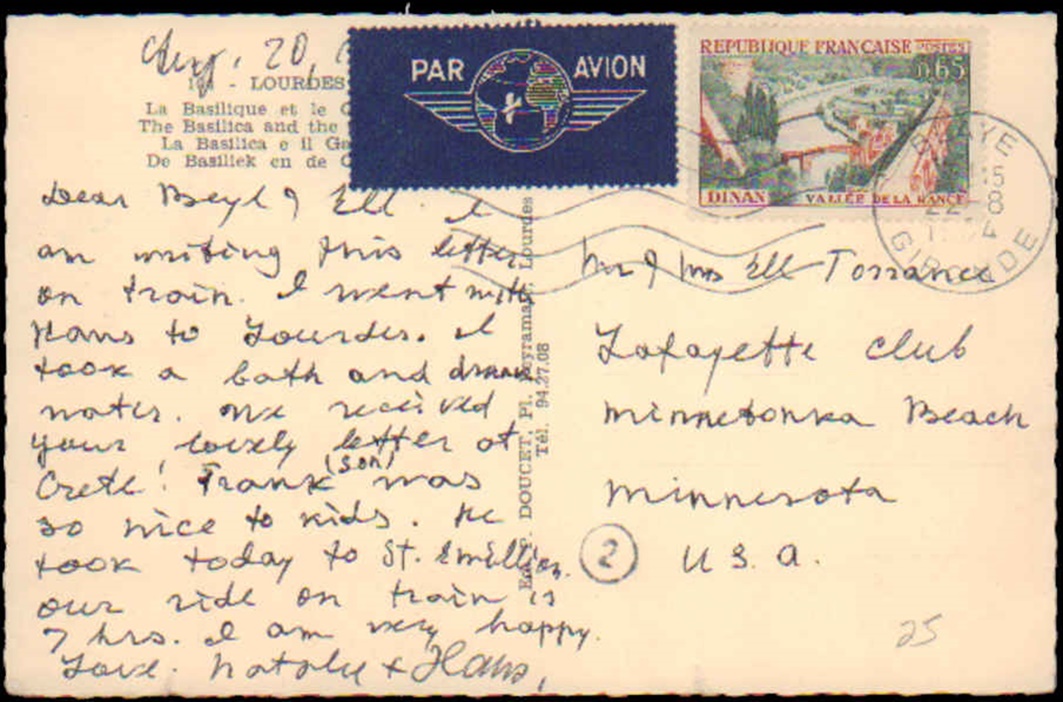 Aug. 20,
- LOURDES
La Basilique et le
The Basilica and the
La Basilica e il
De Basiliek en de
PAR AVION
REPUBLIQUE FRANÇAISE POSTES
0,65
DINAN VALLÉE DE LA RANCE
BLAYE
15
22 8
GIRONDE
Dear Beyl & Ell. I
am writing this letter
on train. I went with
Hans to Lourdes. I
took a bath and drank
water. We received
your lovely letter at
Crete! Frank (son) was
so nice to kids. He
took today to St. Emillion.
our ride on train is
7 hrs. I am very happy.
Love. Nataly & Hans,
DOUCET, Pl. Peyramale, Lourdes
Tél. 94.27.08
Mr & Mrs Ell Torrance
Lafayette Club
Minnetonka Beach
Minnesota
2 U.S.A.
25